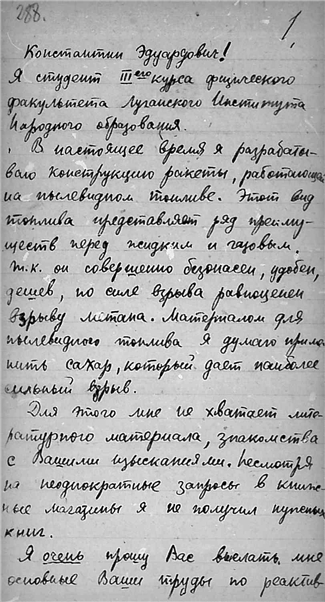 288.
1
Константин Эдуардович!
Я студент III его курса физического
факультета Луганского Института
Народного образования.
В настоящее время я разрабаты-
ваю конструкцию ракеты, работающей
на пылевидном топливе. Этот вид
топлива представляет ряд преиму-
ществ перед жидким и газовым.
т.к. он совершенно безопасен, удобен,
дешев, по силе взрыва равноценен
взрыву метана. Материалом для
пылевидного топлива я думаю приме-
нить сахар, который дает наиболее
сильный взрыв.
Для этого мне не хватает лите-
ратурного материала, знакомства
с Вашими изысканиями. Несмотря
на неоднократные запросы в книж-
ные магазины я не получил нужных
книг.
Я очень прошу Вас выслать мне
основные Ваши труды по реактив-